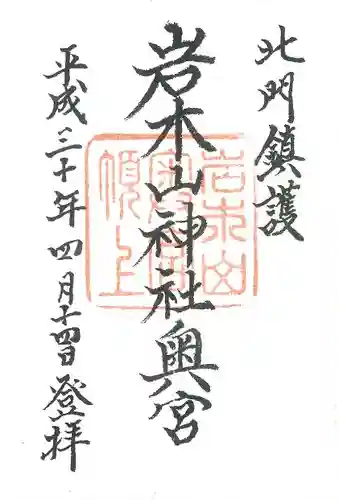 北門鎮護
岩木山神社奥宮
岩木山
奥宮
頂上
平成三十年四月十四日登拝